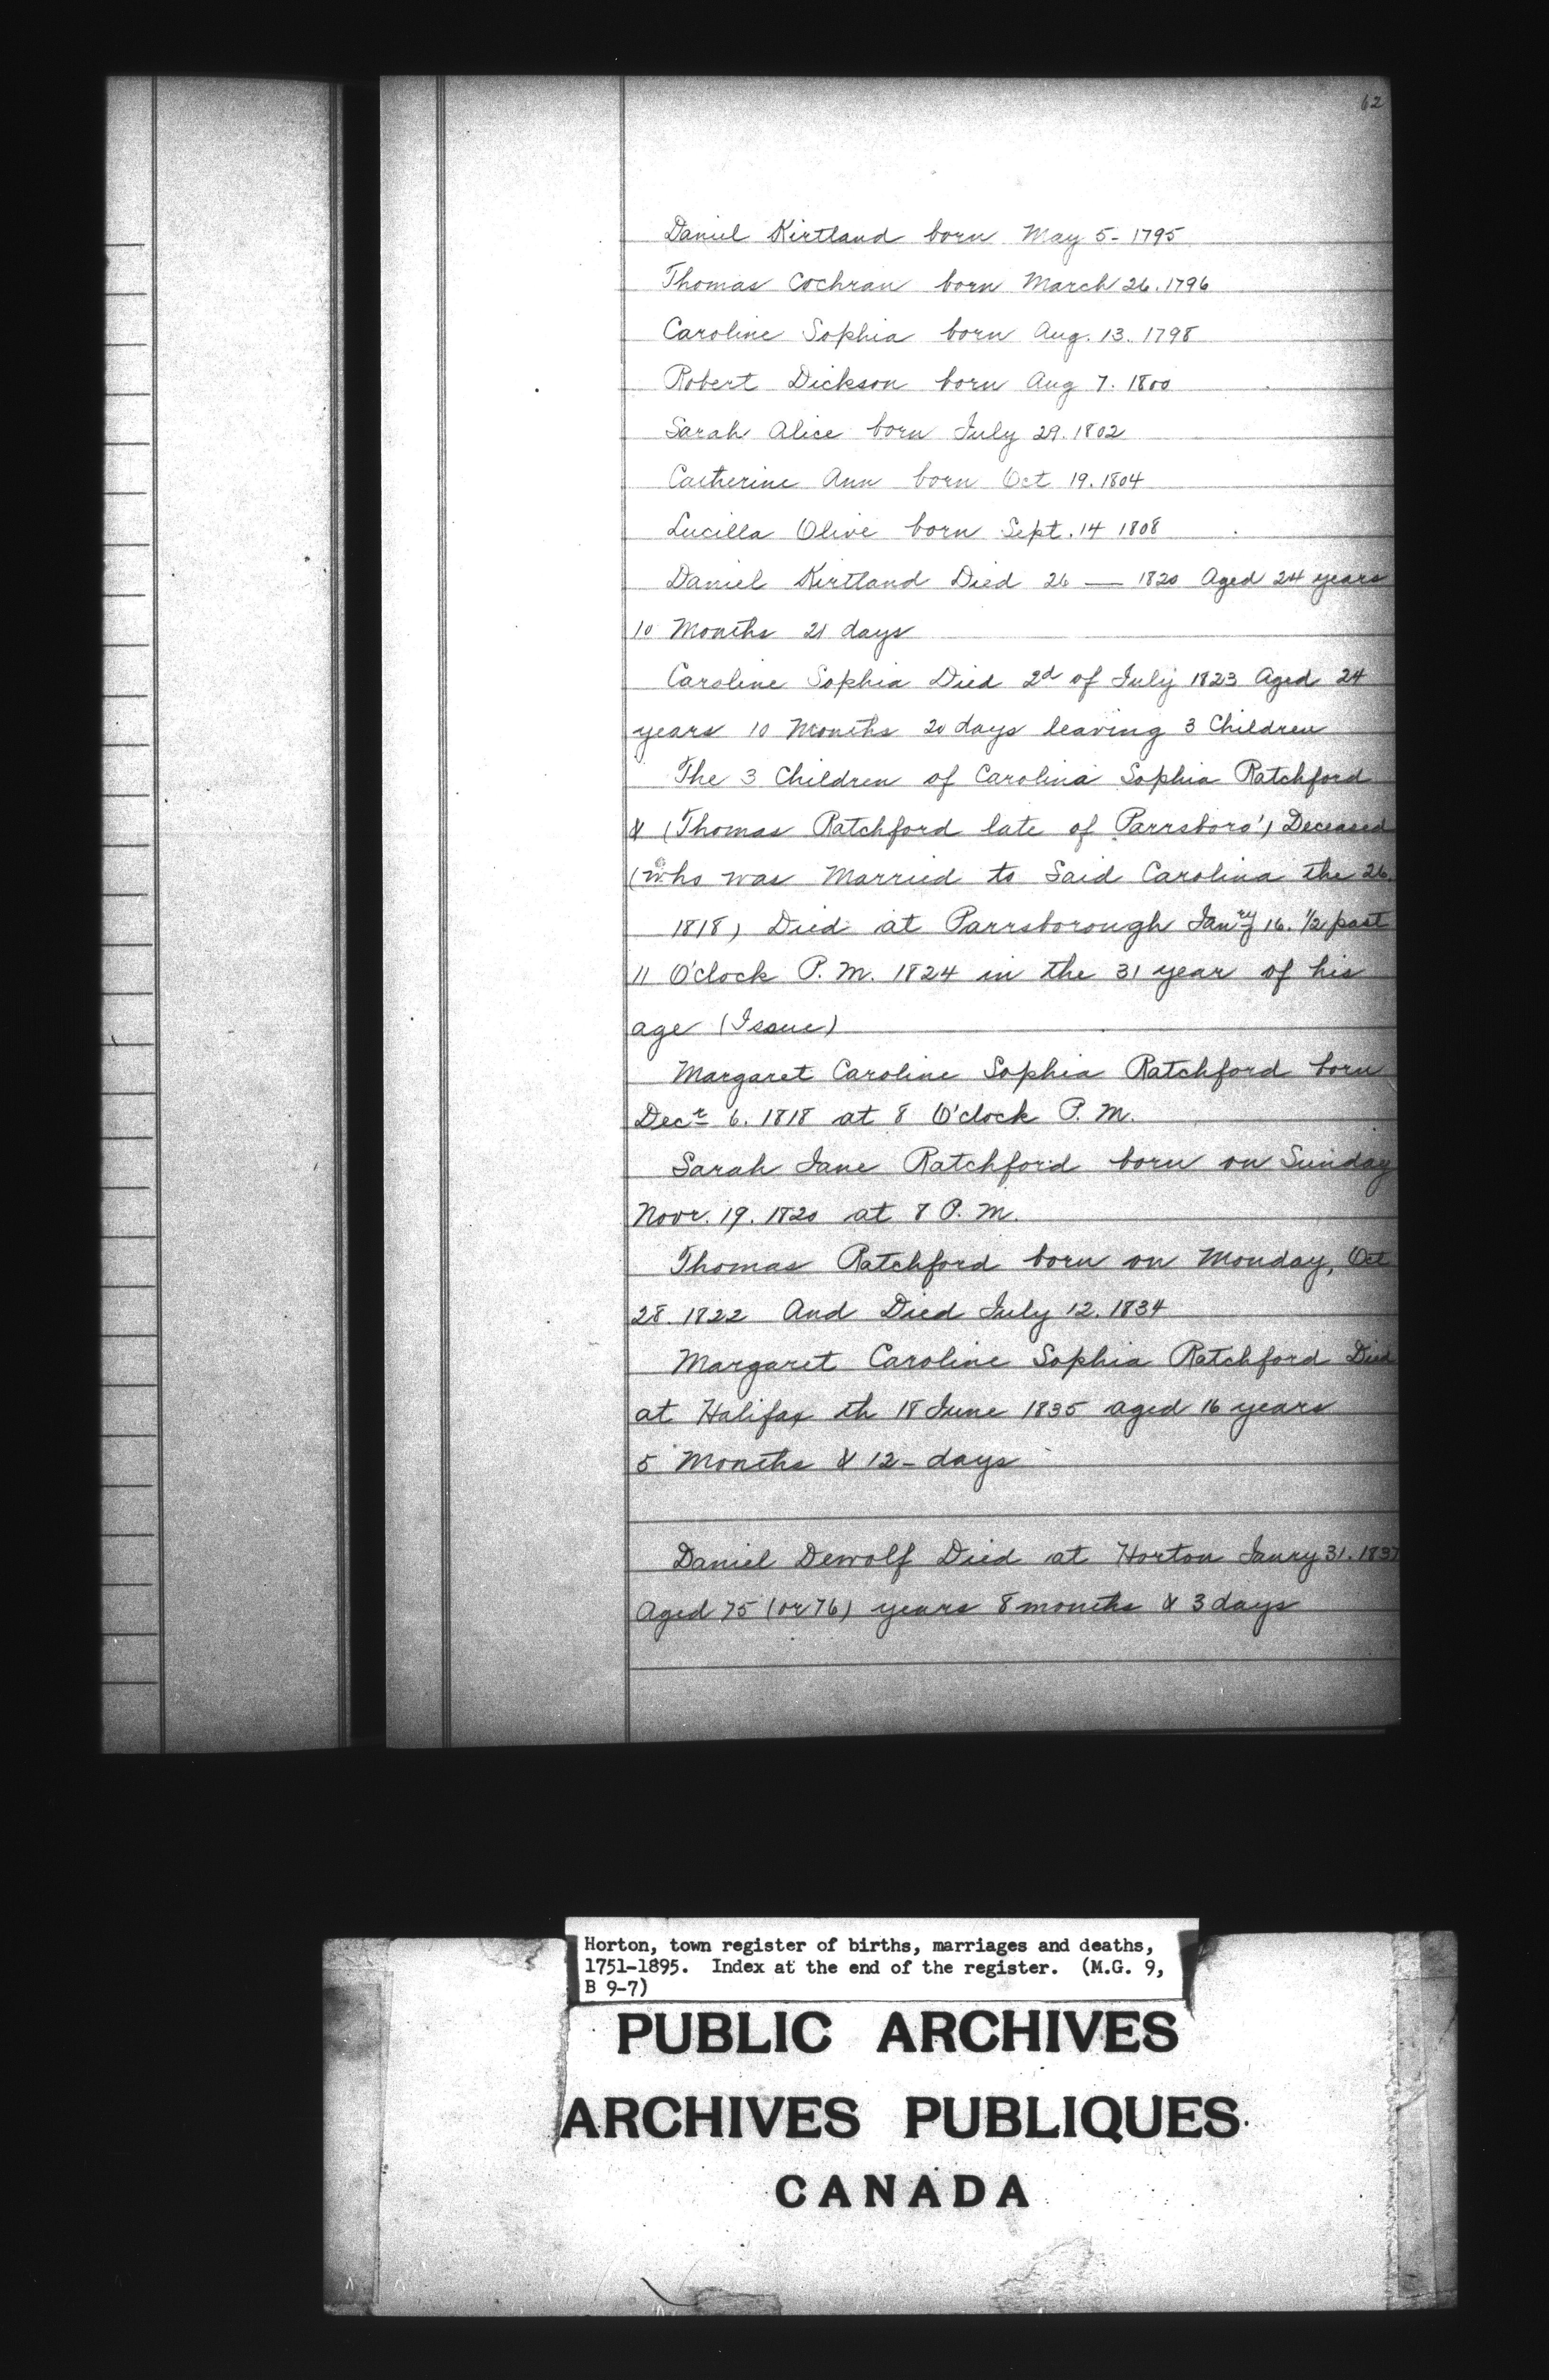 62
Daniel Kirtland born May 5- 1795
Thomas Cochran born March 26. 1796
Caroline Sophia born Aug. 13. 1798
Robert Dickson born Aug 7. 1800
Sarah Alice born July 29. 1802
Catherine Ann born Oct 19. 1804
Lucilla Olive born Sept. 14 1808
Daniel Kirtland Died 26 — 1820 Aged 24 years
10 Months 21 days
Caroline Sophia Died 2d of July 1823 Aged 24
years 10 Months 20 days leaving 3 Children
The 3 Children of Carolina Sophia Ratchford
& (Thomas Ratchford late of Parrsboro') Deceased
(who was Married to Said Carolina the 26.
1818) Died at Parrsborough Janry 16. 1/2 past
11 O'clock P.M. 1824 in the 31 year of his
age (Issue)
Margaret Caroline Sophia Ratchford born
Decr 6. 1818 at 8 O'clock P.M.
Sarah Jane Ratchford born on Sunday
Novr. 19. 1820 at 8 P.M.
Thomas Ratchford born on Monday, Oct
28. 1822 And Died July 12. 1834
Margaret Caroline Sophia Ratchford Died
at Halifax th 18 June 1835 aged 16 years
5 Months & 12- days
Daniel Dewolf Died at Horton Janry 31. 1837
Aged 75 (or 76) years 8 months & 3 days
Horton, town register of births, marriages and deaths,
1751-1895. Index at the end of the register. (M.G. 9,
B 9-7)
PUBLIC ARCHIVES
ARCHIVES PUBLIQUES
CANADA